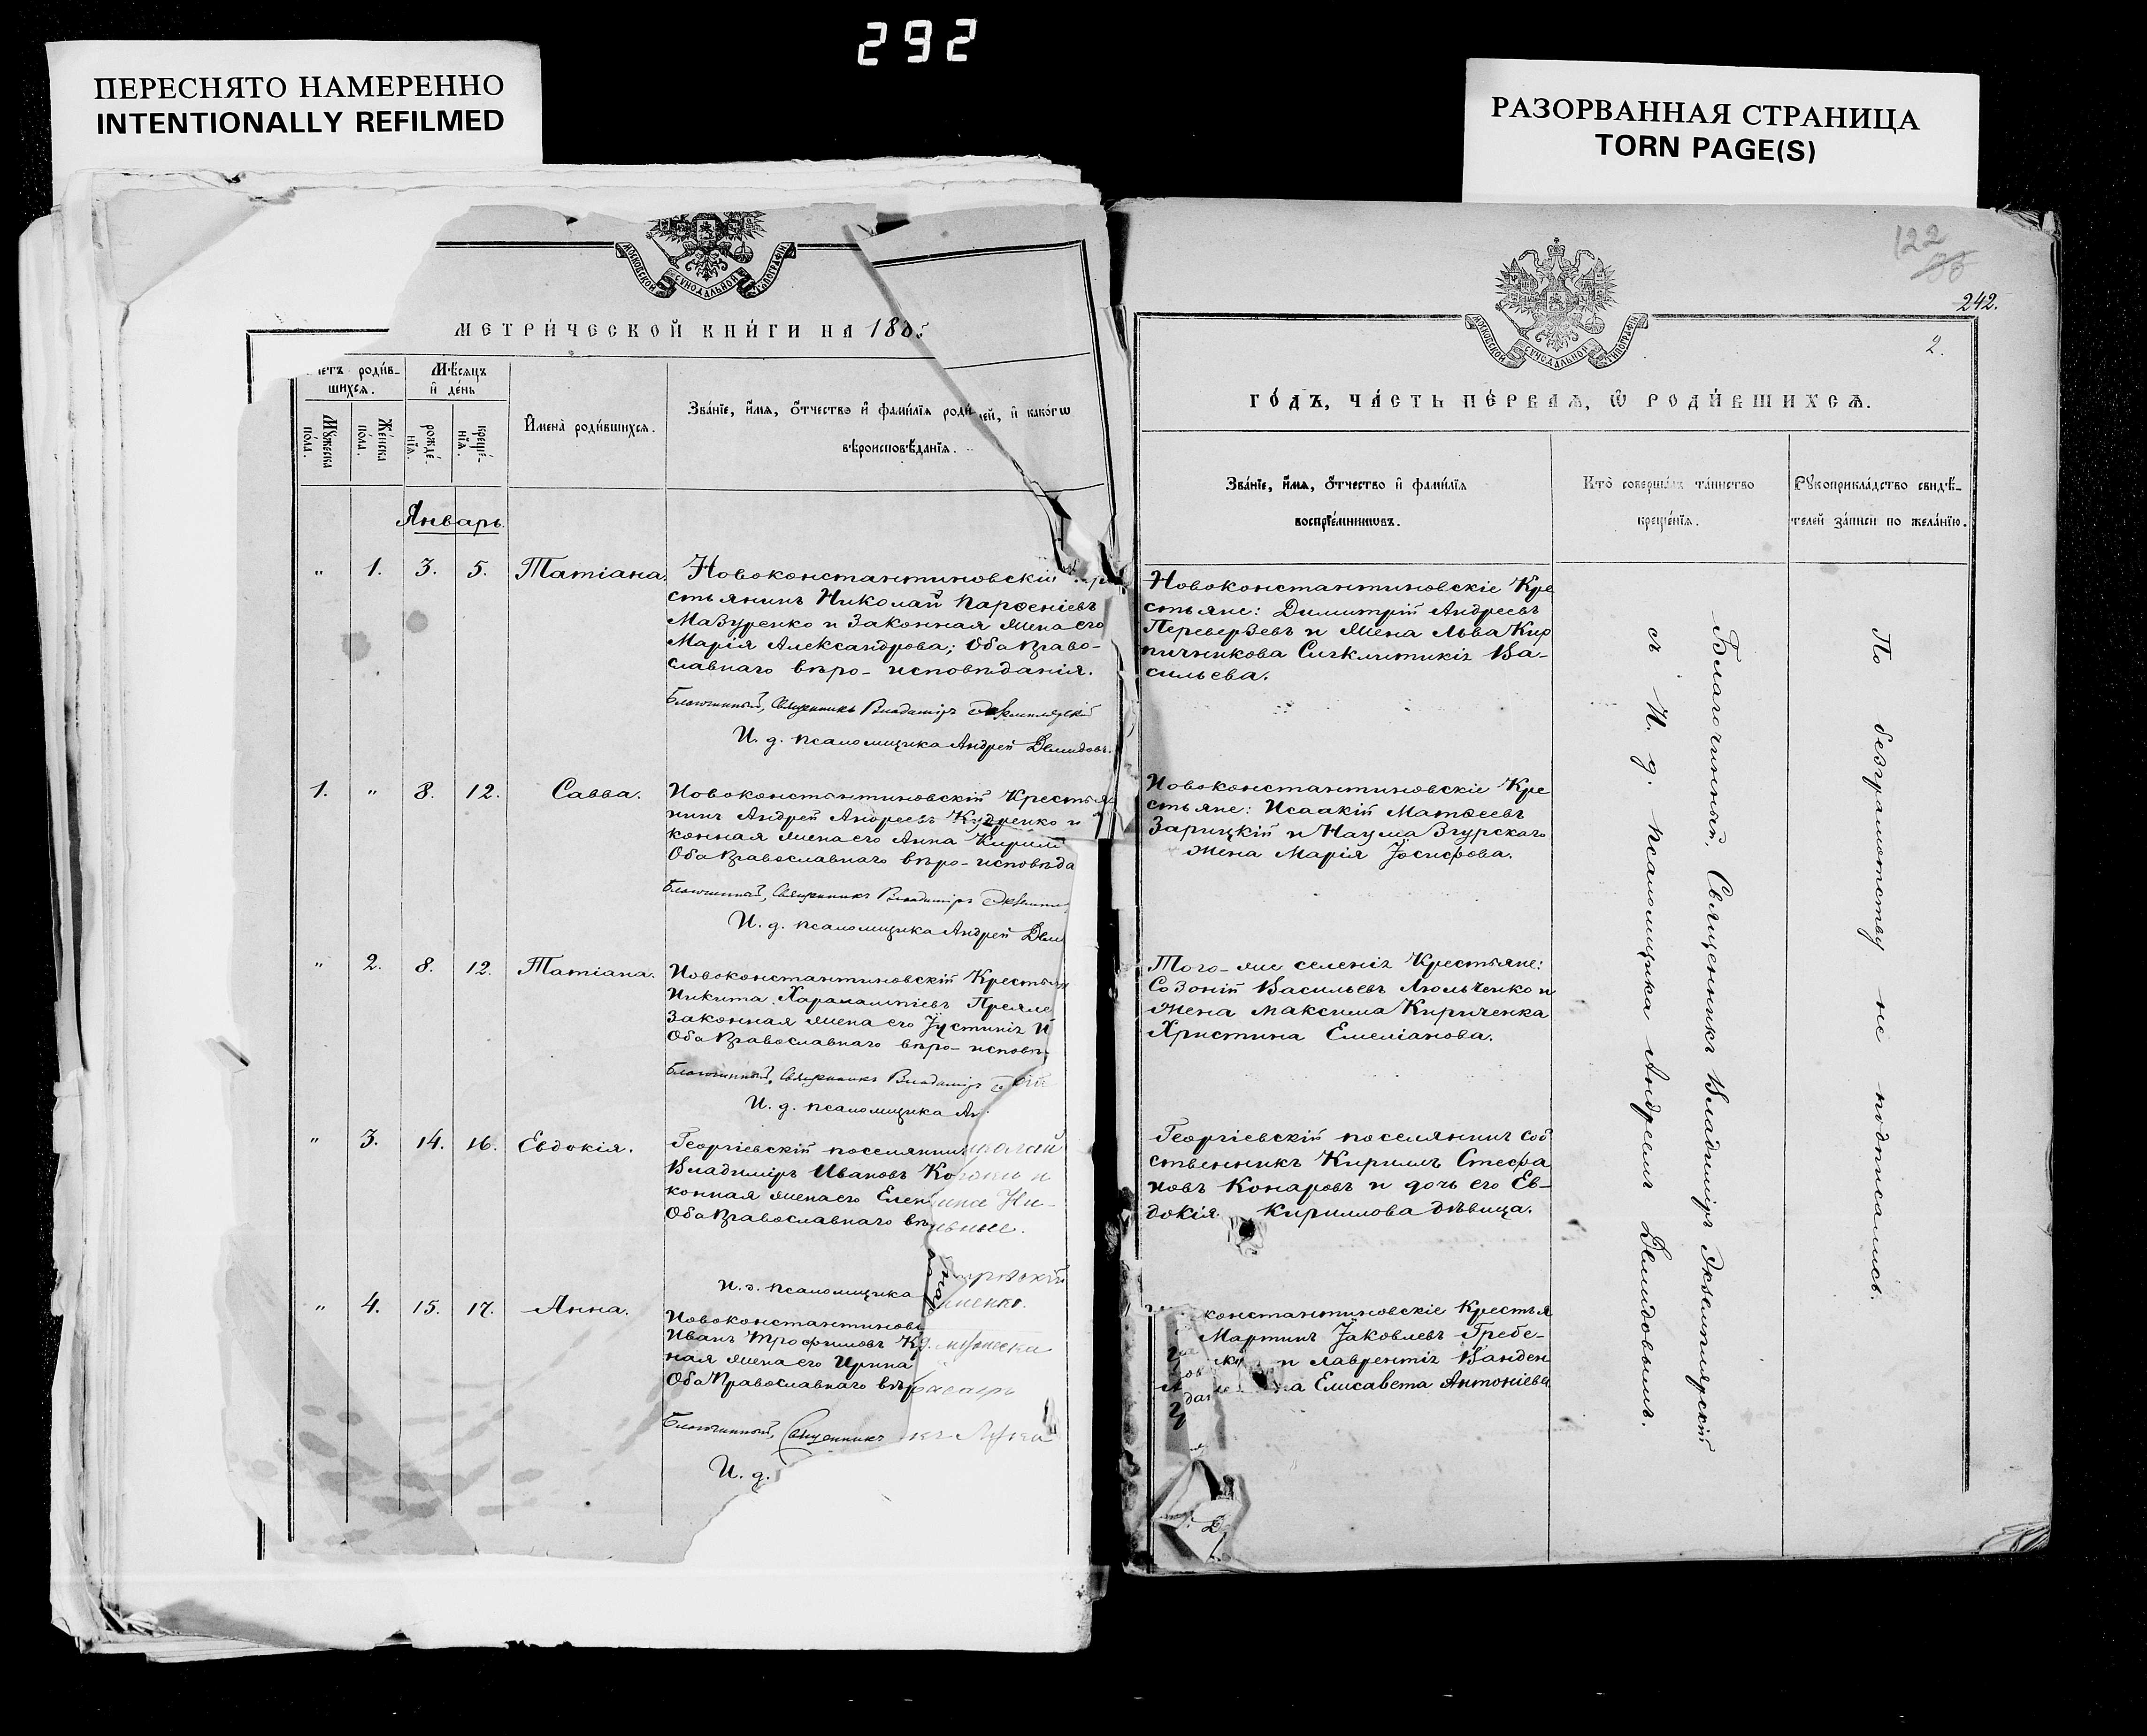 292
ПЕРЕСНЯТО НАМЕРЕННО
INTENTIONALLY REFILMED
РАЗОРВАННАЯ СТРАНИЦА
TORN PAGE(S)
МОСКОВСКОЙ СУНОДАЛЬНОЙ ТИПОГРАФІИ
МЕТРИ́ЧЕСКОЙ КНИ́ГИ НА 188
роди́в-
шихся.
Мѣ́сяцъ
и҆ де́нь
Мꙋ́жеска
по́ла.
Же́нска
по́ла.
рожде́-
нїя.
креще́-
нїя.
И҆мена̀ роди́вшихся.
Зва́нїе, и҆́мя, ѻ҆́тчество и҆ фами́лїя роди́лей, и҆ какѡ́гѡ
вѣроисповѣ́данїя.
Январь.
„ 1. 3. 5. Татіана.
Новоконстантиновскій
стьянинъ Николай Парѳеніевъ
Мазуренко и законная жена его
Марія Александрова; оба Право-
славнаго вѣро-исповѣданія.
Благочинный, Священникъ Владиміръ Экземплярскій
И. д. псаломщика Андрей Демидовъ.
1. „ 8. 12. Савва.
Новоконстантиновскій Крестья
нинъ Андрей Андреевъ Кудренко и
конная жена его Анна Кирил
Оба Православнаго вѣро-исповѣда
Благочинный, Священникъ Владиміръ Экземпл
И. д. псаломщика Андрей Деми
„ 2. 8. 12. Татіана.
Новоконстантиновскій Крестьян
Никита Харалампіевъ
Законная жена его Іустинія
Оба Православнаго вѣро-исповѣ
Благочинный, Священникъ Владиміръ
И. д. псаломщика Ан
„ 3. 14. 16. Евдокія.
Георгіевскій поселянинъ
Владиміръ Ивановъ
конная жена его Елен
Оба Православнаго вѣ
И. д. псаломщика
„ 4. 15. 17. Анна.
Новоконстантиновс
Иванъ Трофимовъ
ная жена его Ирина
Оба Православнаго вѣр
Благочинный, Священникъ
И. д.
122
242.
2.
МОСКОВСКОЙ СУНОДАЛЬНОЙ ТИПОГРАФІИ
ГО́ДЪ, ЧА́СТЬ ПЕ́РВАЯ, Ѽ РОДИ́ВШИХСЯ.
Зва́нїе, и҆́мя, ѻ҆́тчество и҆ фами́лїя
воспрїе́мникѡвъ.
Кто̀ соверша́лъ та́инство
креще́нїя.
Рꙋкоприкла́дство свидѣ́-
телей за́писи по жела́нїю.
Новоконстантиновскіе Кре
стьяне: Димитрій Андреевъ
Переверзевъ и жена Льва Кир
пичникова Сигклитикія Ва-
сильева.
Новоконстантиновскіе Кре
стьяне: Исаакій Матѳеевъ
Зарицкій и Наума Згурскаго
жена Марія Іосифова.
Того-же селенія Крестьяне:
Созонтій Васильевъ Люльченко и
жена Максима Кириченка
Христина Емеліанова.
Георгіевскій поселянинъ соб
ственникъ Кириллъ Стефа
новъ Конаровъ и дочь его Ев-
докія Кириллова дѣвица.
константиновскіе Крестья
Мартинъ Іаковлевъ Гребе-
и Лаврентія Ванден
Елисавета Антоніева.
Благочинный, Священникъ Владиміръ Экземплярскій
съ И. д. псаломщика Андреемъ Демидовымъ.
По безграмотству не подписались.